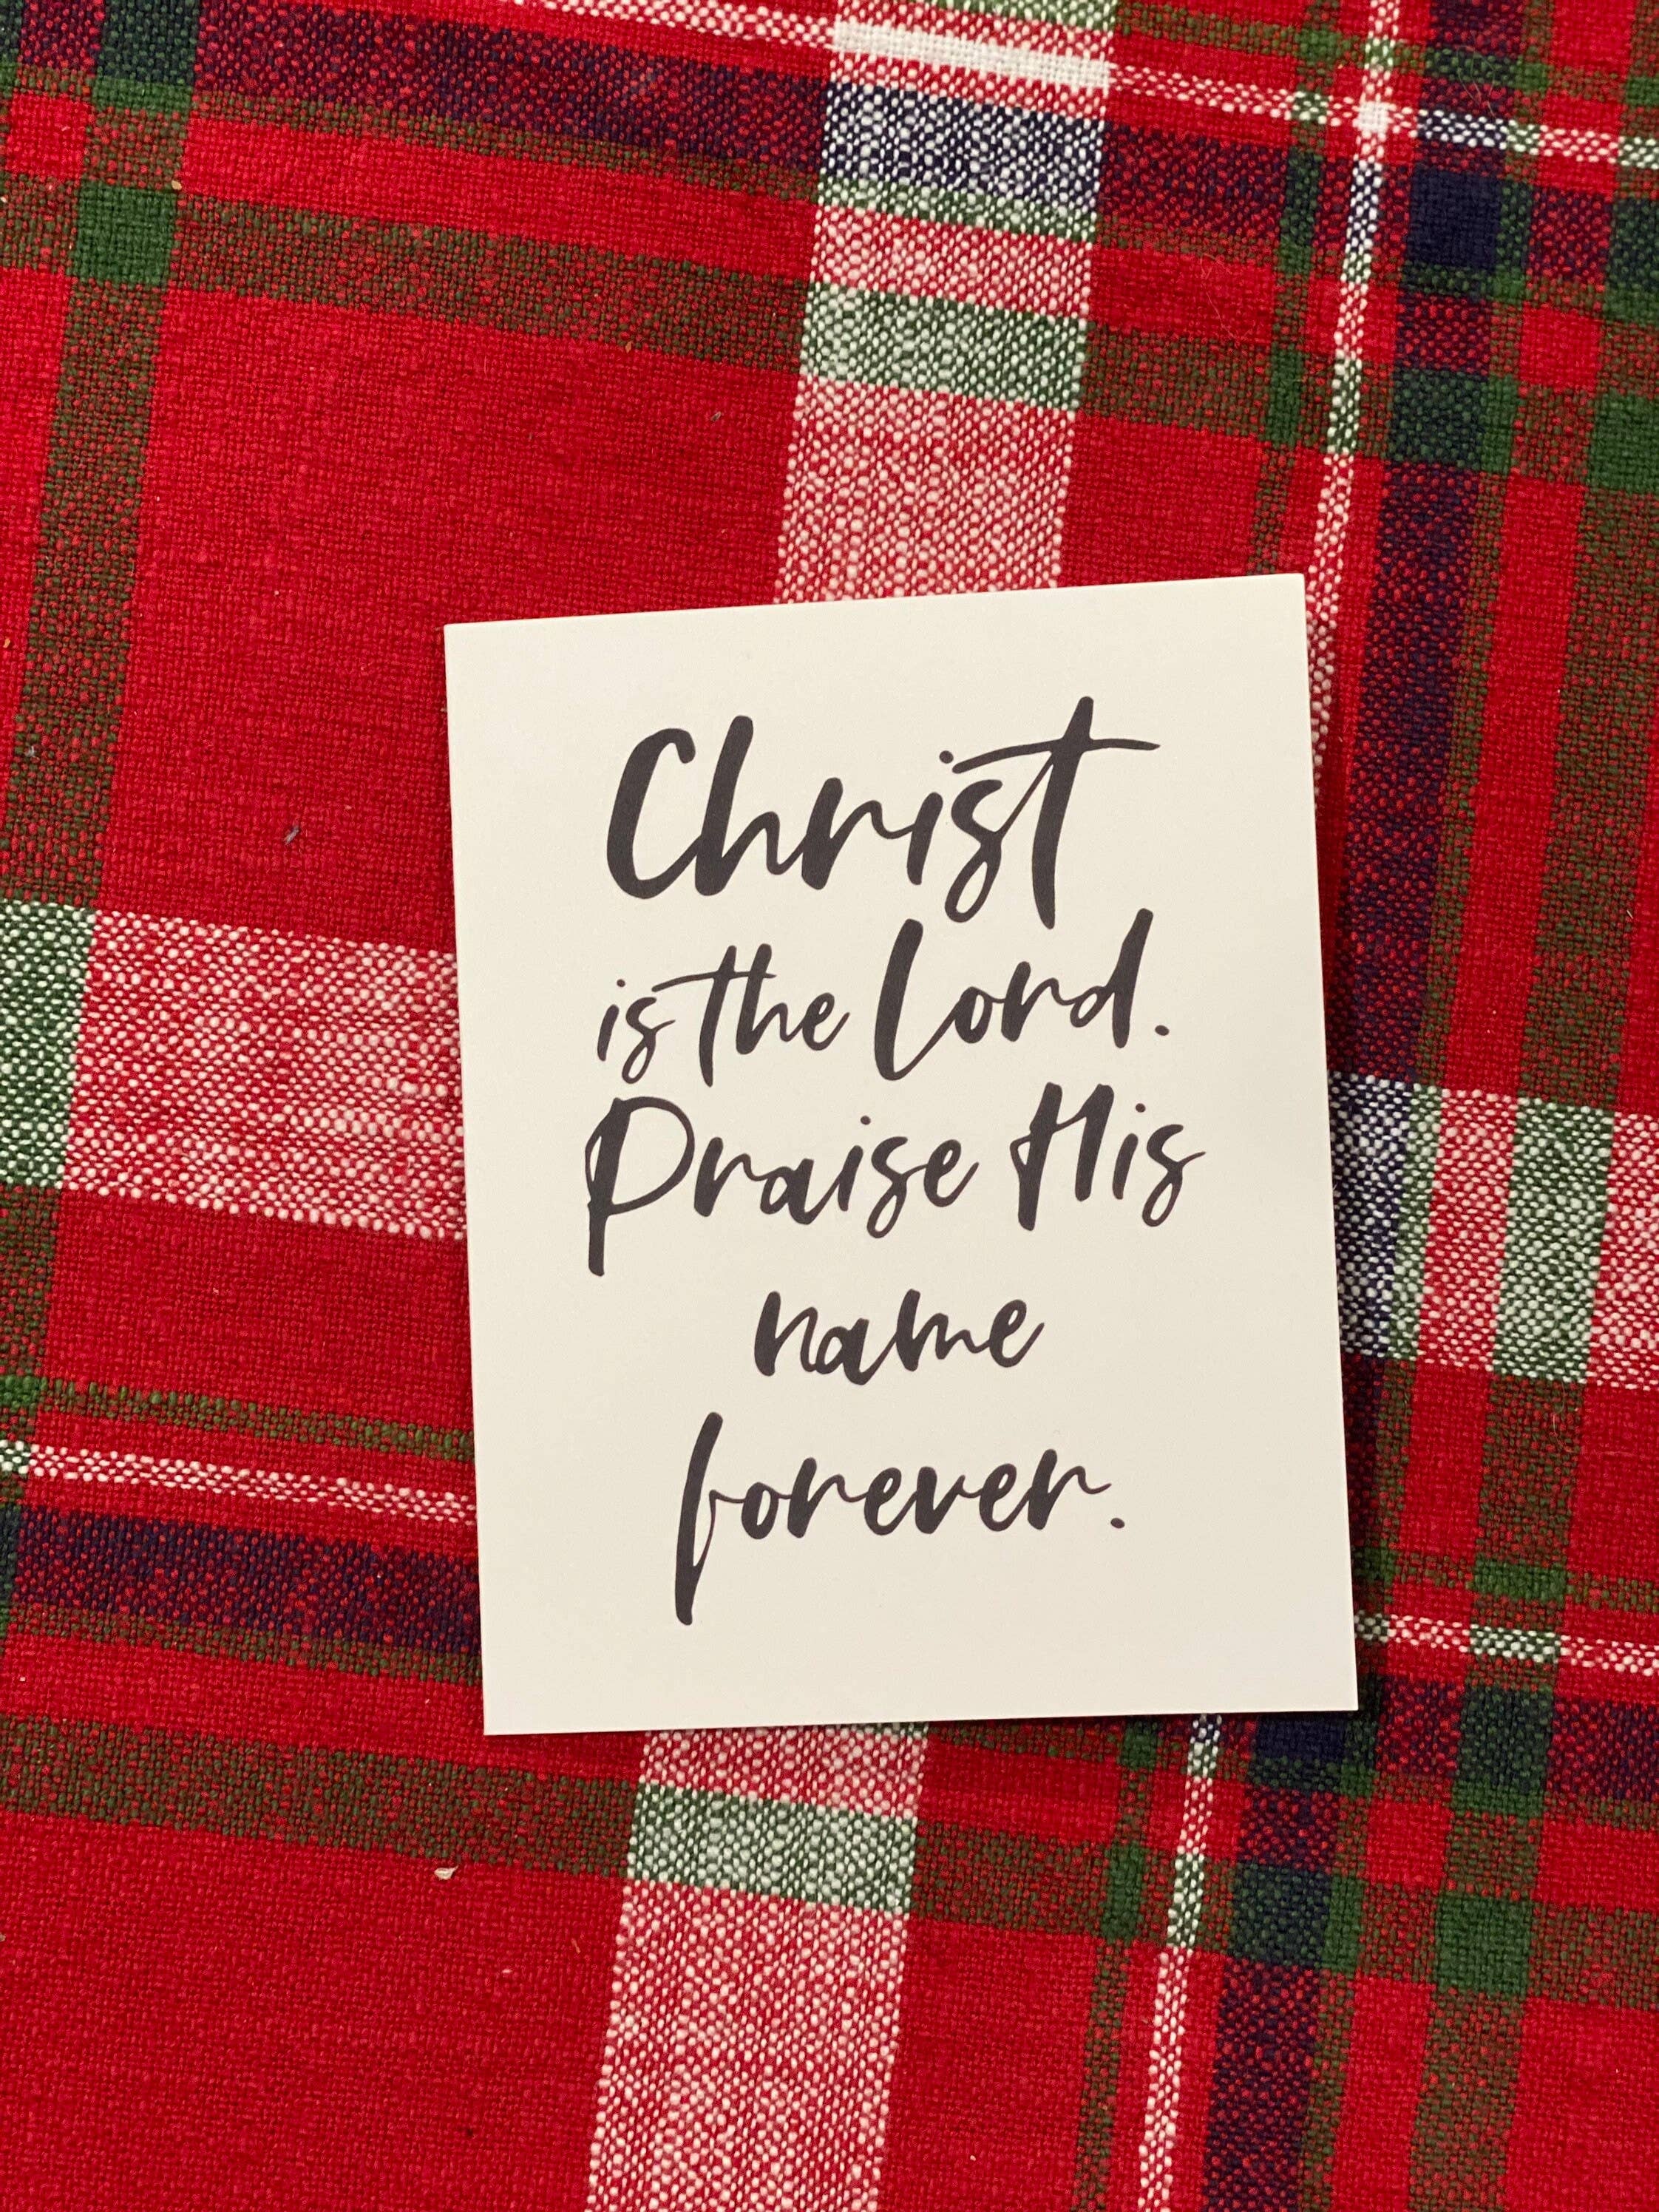 Christ
is the Lord.
Praise His
name
forever.